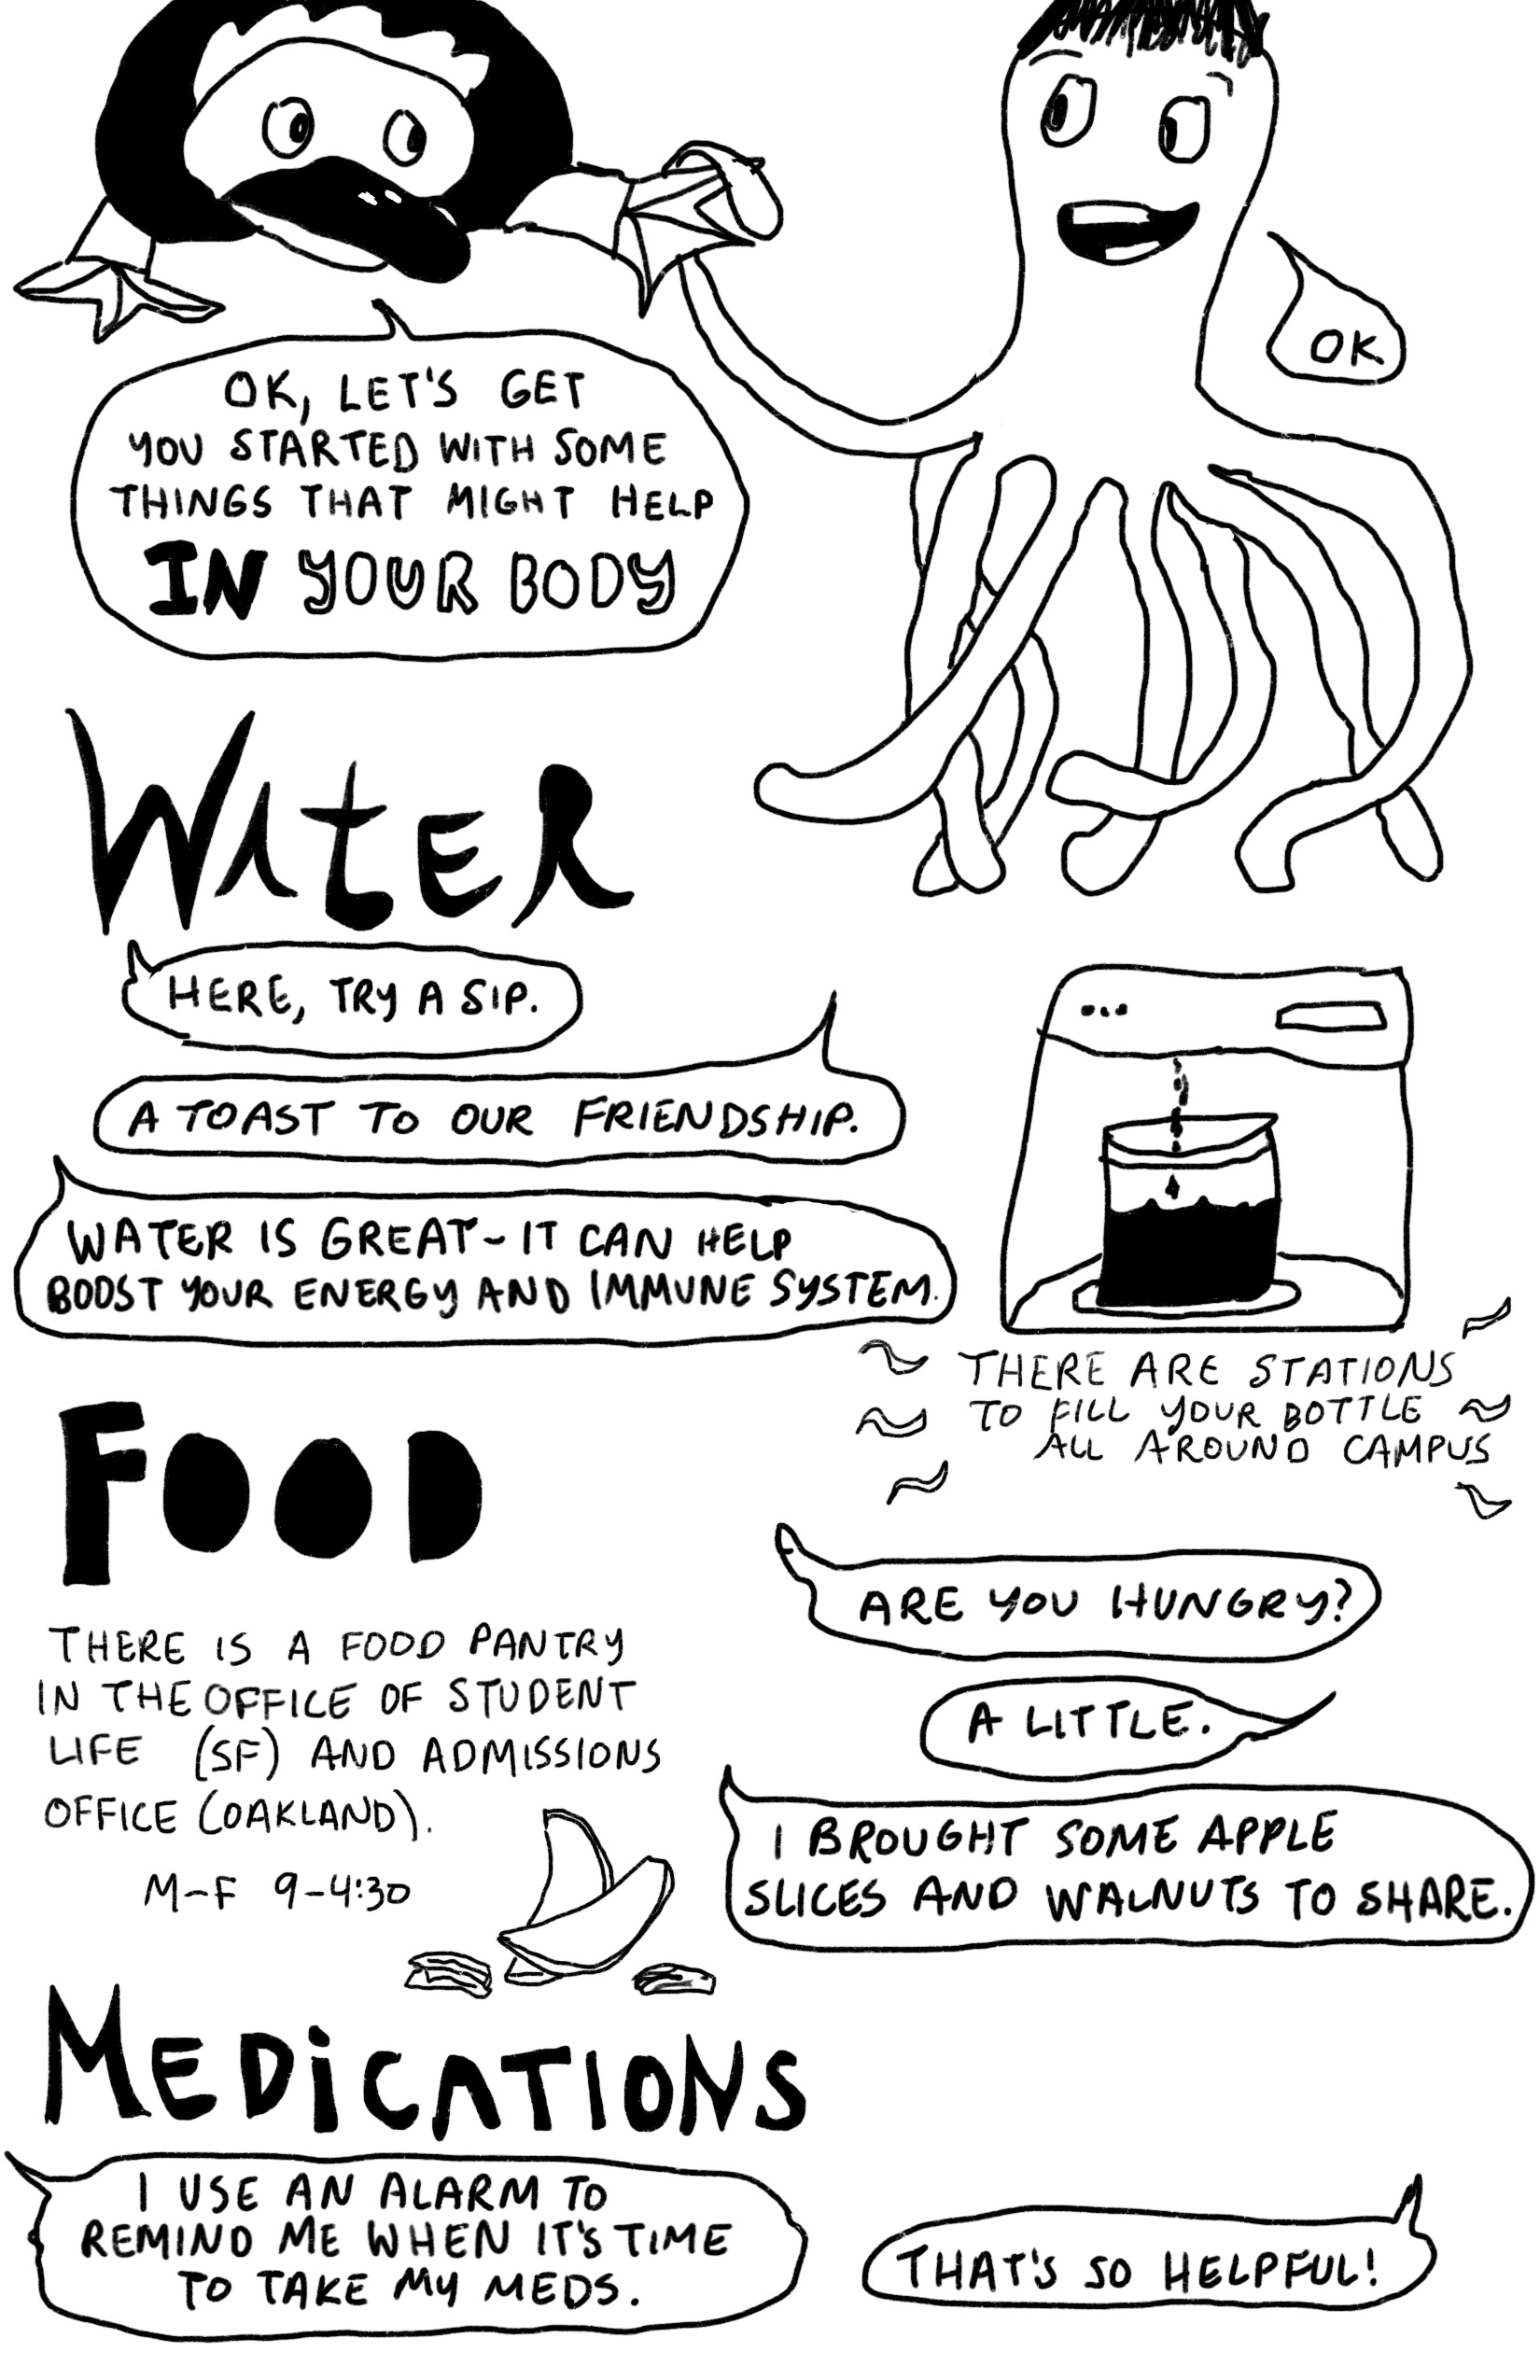 OK
OK, LET'S GET
YOU STARTED WITH SOME
THINGS THAT MIGHT HELP
IN YOUR BODY
WATER
HERE, TRY A SIP.
A TOAST TO OUR FRIENDSHIP.
WATER IS GREAT~IT CAN HELP
BOOST YOUR ENERGY AND IMMUNE SYSTEM.
THERE ARE STATIONS
TO FILL YOUR BOTTLE
ALL AROUND CAMPUS
FOOD
THERE IS A FOOD PANTRY
IN THE OFFICE OF STUDENT
LIFE (SF) AND ADMISSIONS
OFFICE (OAKLAND).
M-F 9-4:30
ARE YOU HUNGRY?
A LITTLE.
I BROUGHT SOME APPLE
SLICES AND WALNUTS TO SHARE.
MEDiCATIONS
I USE AN ALARM TO
REMIND ME WHEN IT'S TIME
TO TAKE MY MEDS.
THAT'S SO HELPFUL!